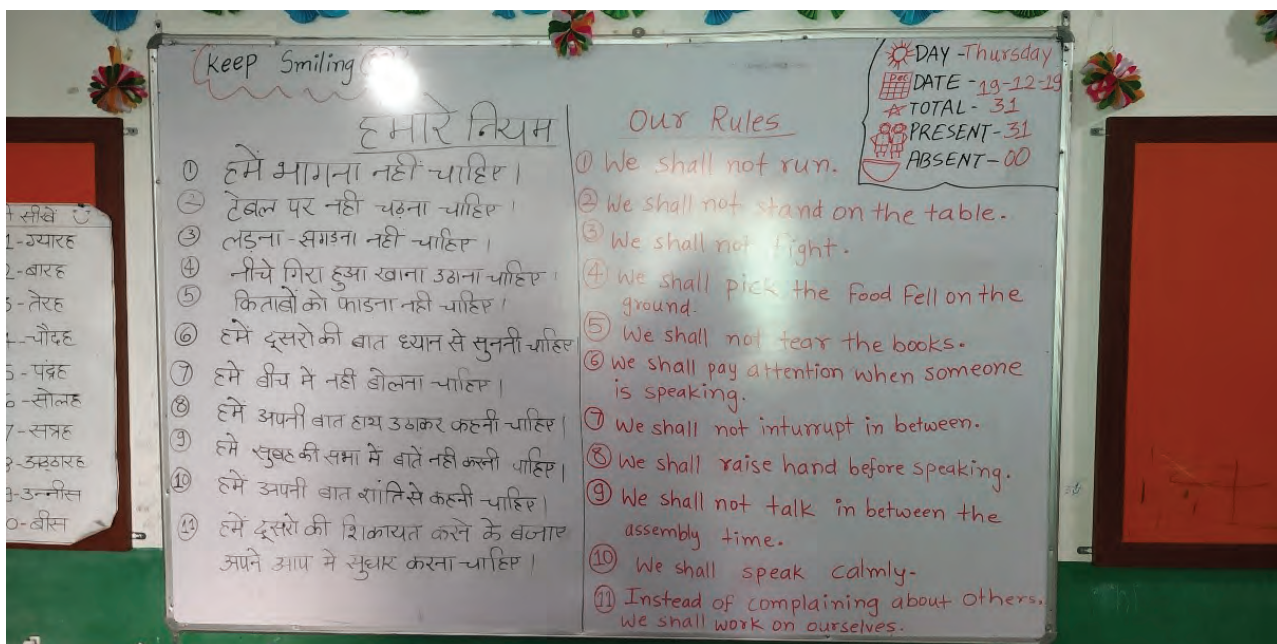 Keep Smiling
DAY - Thursday
DATE - 19-12-19
TOTAL - 31
PRESENT - 31
ABSENT - 00
Dec
हमारे नियम
① हमें भागना नहीं चाहिए।
② टेबल पर नही चढ़ना चाहिए।
③ लड़ना-झगडना नही चाहिए।
④ नीचे गिरा हुआ खाना उठाना चाहिए।
⑤ किताबों को फाडना नही चाहिए।
⑥ हमें दूसरो की बात ध्यान से सुननी चाहिए
⑦ हमे बीच मे नही बोलना चाहिए।
⑧ हमें अपनी बात हाथ उठाकर कहनी चाहिए।
⑨ हमे सुबह की सभा में बातें नही करनी चाहिए।
⑩ हमें अपनी बात शांति से कहनी चाहिए।
⑪ हमें दूसरो की शिकायत करने के बजाए
अपने आप मे सुधार करना चाहिए।
Our Rules
① We shall not run.
② We shall not stand on the table.
③ We shall not fight.
④ We shall pick the food fell on the
ground.
⑤ We shall not tear the books.
⑥ We shall pay attention when someone
is speaking.
⑦ We shall not inturrupt in between.
⑧ We shall raise hand before speaking.
⑨ We shall not talk in between the
assembly time.
⑩ We shall speak calmly-
⑪ Instead of complaining about others.
we shall work on ourselves.
सीखें
1-ग्यारह
2-बारह
3-तेरह
4-चौदह
5-पंद्रह
6-सोलह
7-सत्रह
8-अठ्ठारह
9-उन्नीस
0-बीस